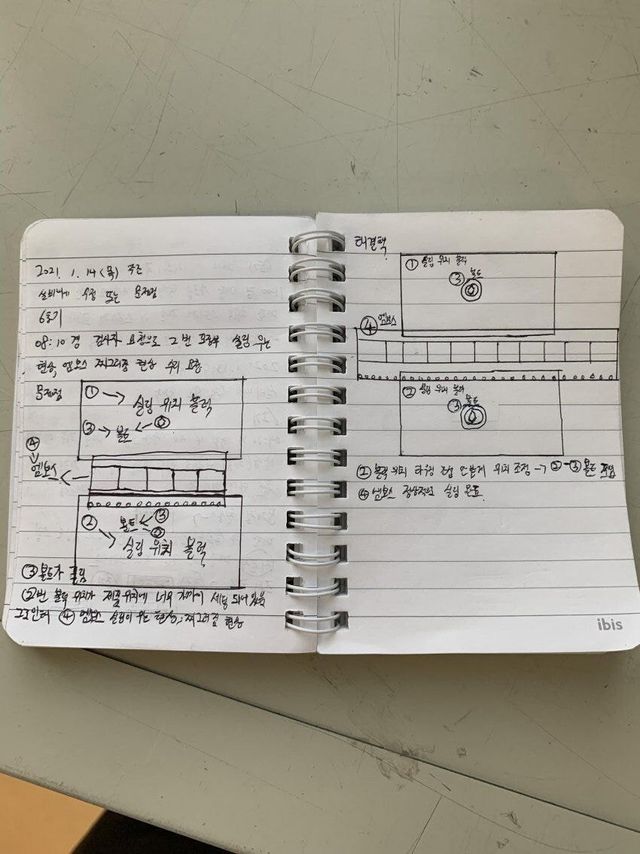 2021. 1. 14 (목) 주간
설비내 수정 또는 문제점
6호기
08:10 경 검사자 요청으로 2번 프로브 실링 우는
현상, 엠보스 찌그러짐 현상 수리 요청
문제점
① → 실링 위치 블럭
③ → 볼트
④
엠보스
② 볼트 ③
→ 실링 위치 블럭
③ 볼트가 풀림
②번 블럭 위치가 제품위치에 너무 가까이 세팅 되어있음
그로인해 ④ 엠보스 실링이 우는 현상, 찌그러짐 현상
해결책
① 실링 위치 블럭
③ 볼트
④ 엠보스
② 실링 위치 블럭
③ 볼트
② 블럭 위치 안쪽 위치 조정 → ②-③ 볼트 조임
④ 엠보스 정상적인 실링 완료
ibis